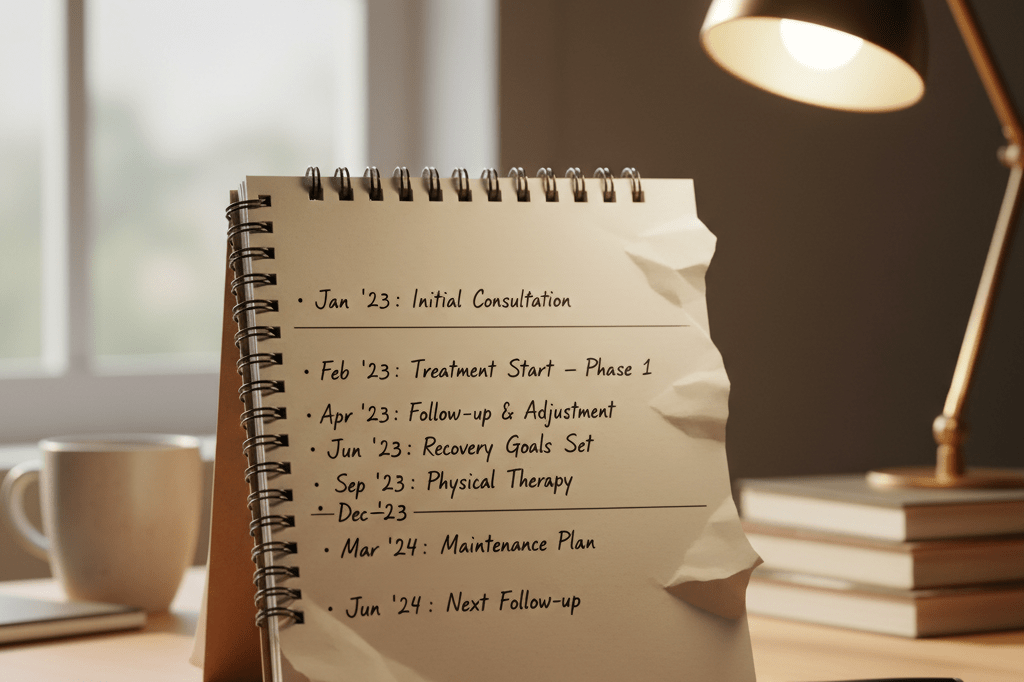 • Jan '23: Initial Consultation
• Feb '23: Treatment Start – Phase 1
• Apr '23: Follow-up & Adjustment
• Jun '23: Recovery Goals Set
• Sep '23: Physical Therapy
• Dec '23
• Mar '24: Maintenance Plan
• Jun '24: Next Follow-up